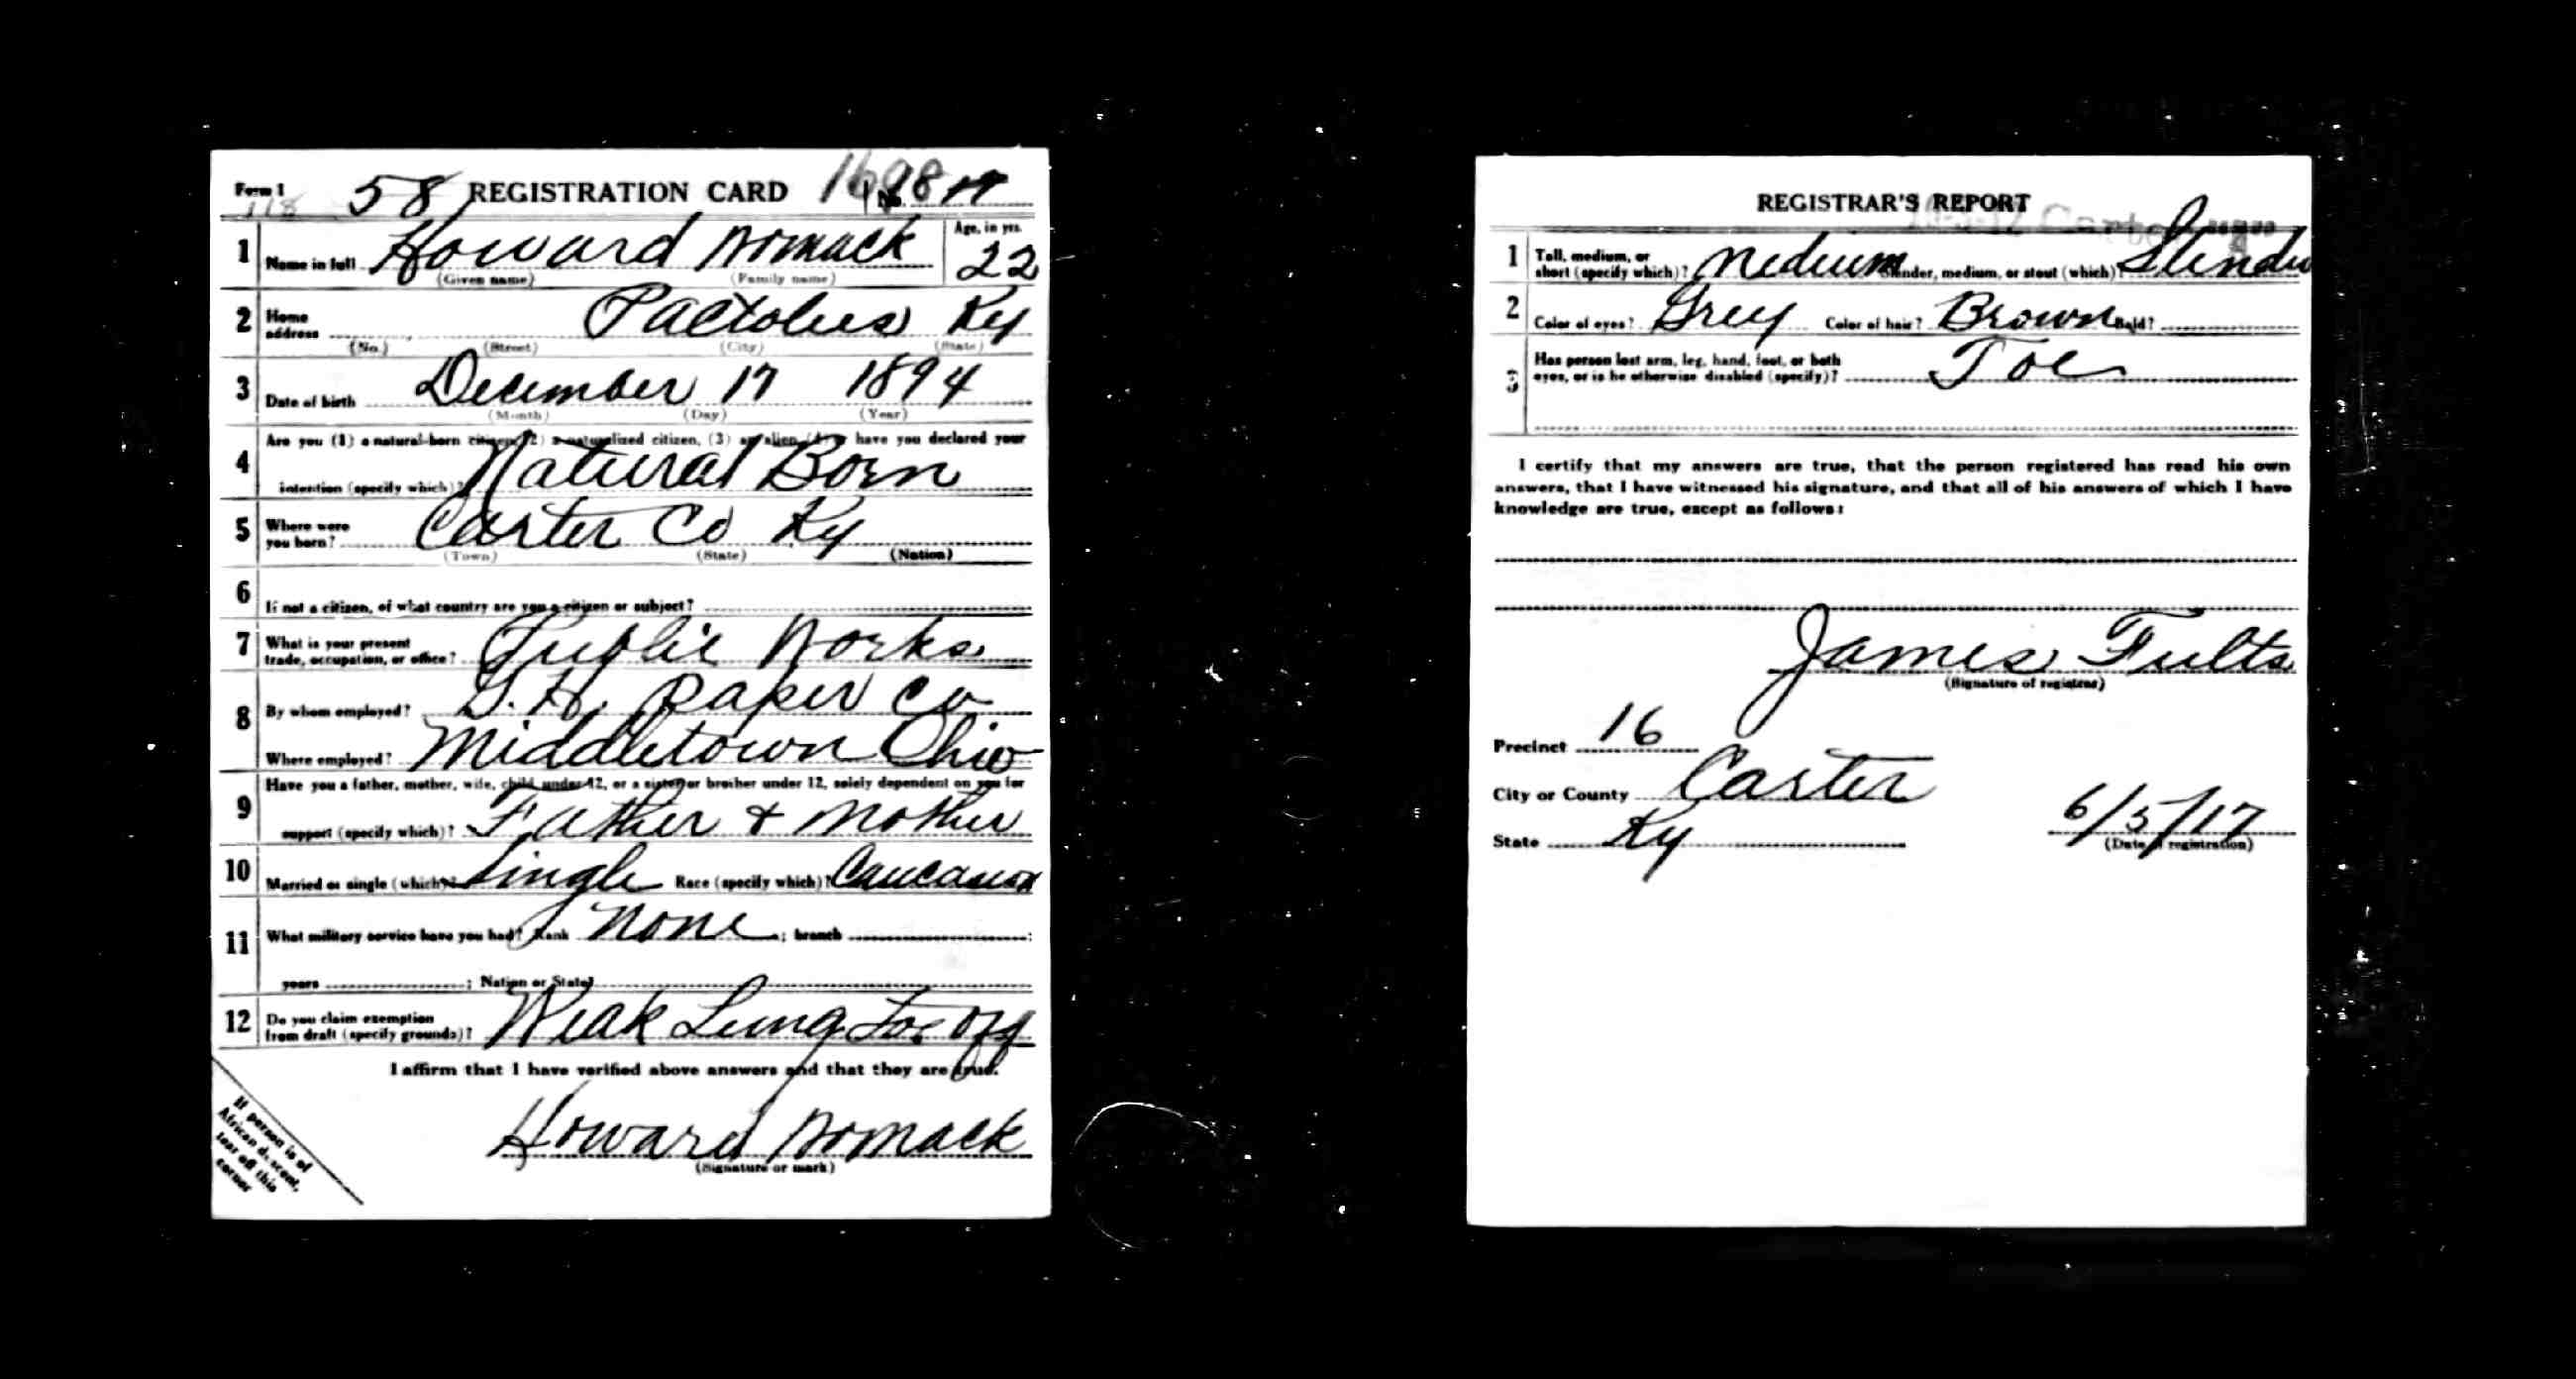 Form 1
118
58 REGISTRATION CARD No. 19
1 Name in full Howard Womack Age, in yrs. 22
(Given name) (Family name)
2 Home address Pactolus Ky
(No.) (Street) (City) (State)
3 Date of birth December 17 1894
(Month) (Day) (Year)
4 Are you (1) a natural-born citizen, (2) a naturalized citizen, (3) an alien, (4) or have you declared your
intention (specify which)? Natural Born
5 Where were you born? Carter Co Ky
(Town) (State) (Nation)
6 If not a citizen, of what country are you a citizen or subject?
7 What is your present trade, occupation, or office? Public Works
8 By whom employed? Paper Co
Where employed? Middletown Ohio
9 Have you a father, mother, wife, child under 12, or a sister or brother under 12, solely dependent on you for
support (specify which)? Father + Mother
10 Married or single (which)? Single Race (specify which)? Caucasian
11 What military service have you had? Rank None ; branch ;
years ; Nation or State
12 Do you claim exemption from draft (specify grounds)? Weak Lung Toe Off
I affirm that I have verified above answers and that they are true.
Howard Womack
(Signature or mark)
If person is of
African descent,
tear off this
corner
REGISTRAR'S REPORT
1 Tall, medium, or short (specify which)? Medium Slender, medium, or stout (which)? Slender
2 Color of eyes? Grey Color of hair? Brown Bald?
3 Has person lost arm, leg, hand, foot, or both
eyes, or is he otherwise disabled (specify)? Toe
I certify that my answers are true, that the person registered has read his own
answers, that I have witnessed his signature, and that all of his answers of which I have
knowledge are true, except as follows:
James Fults
(Signature of registrar)
Precinct 16
City or County Carter
State Ky 6/5/17
(Date of registration)